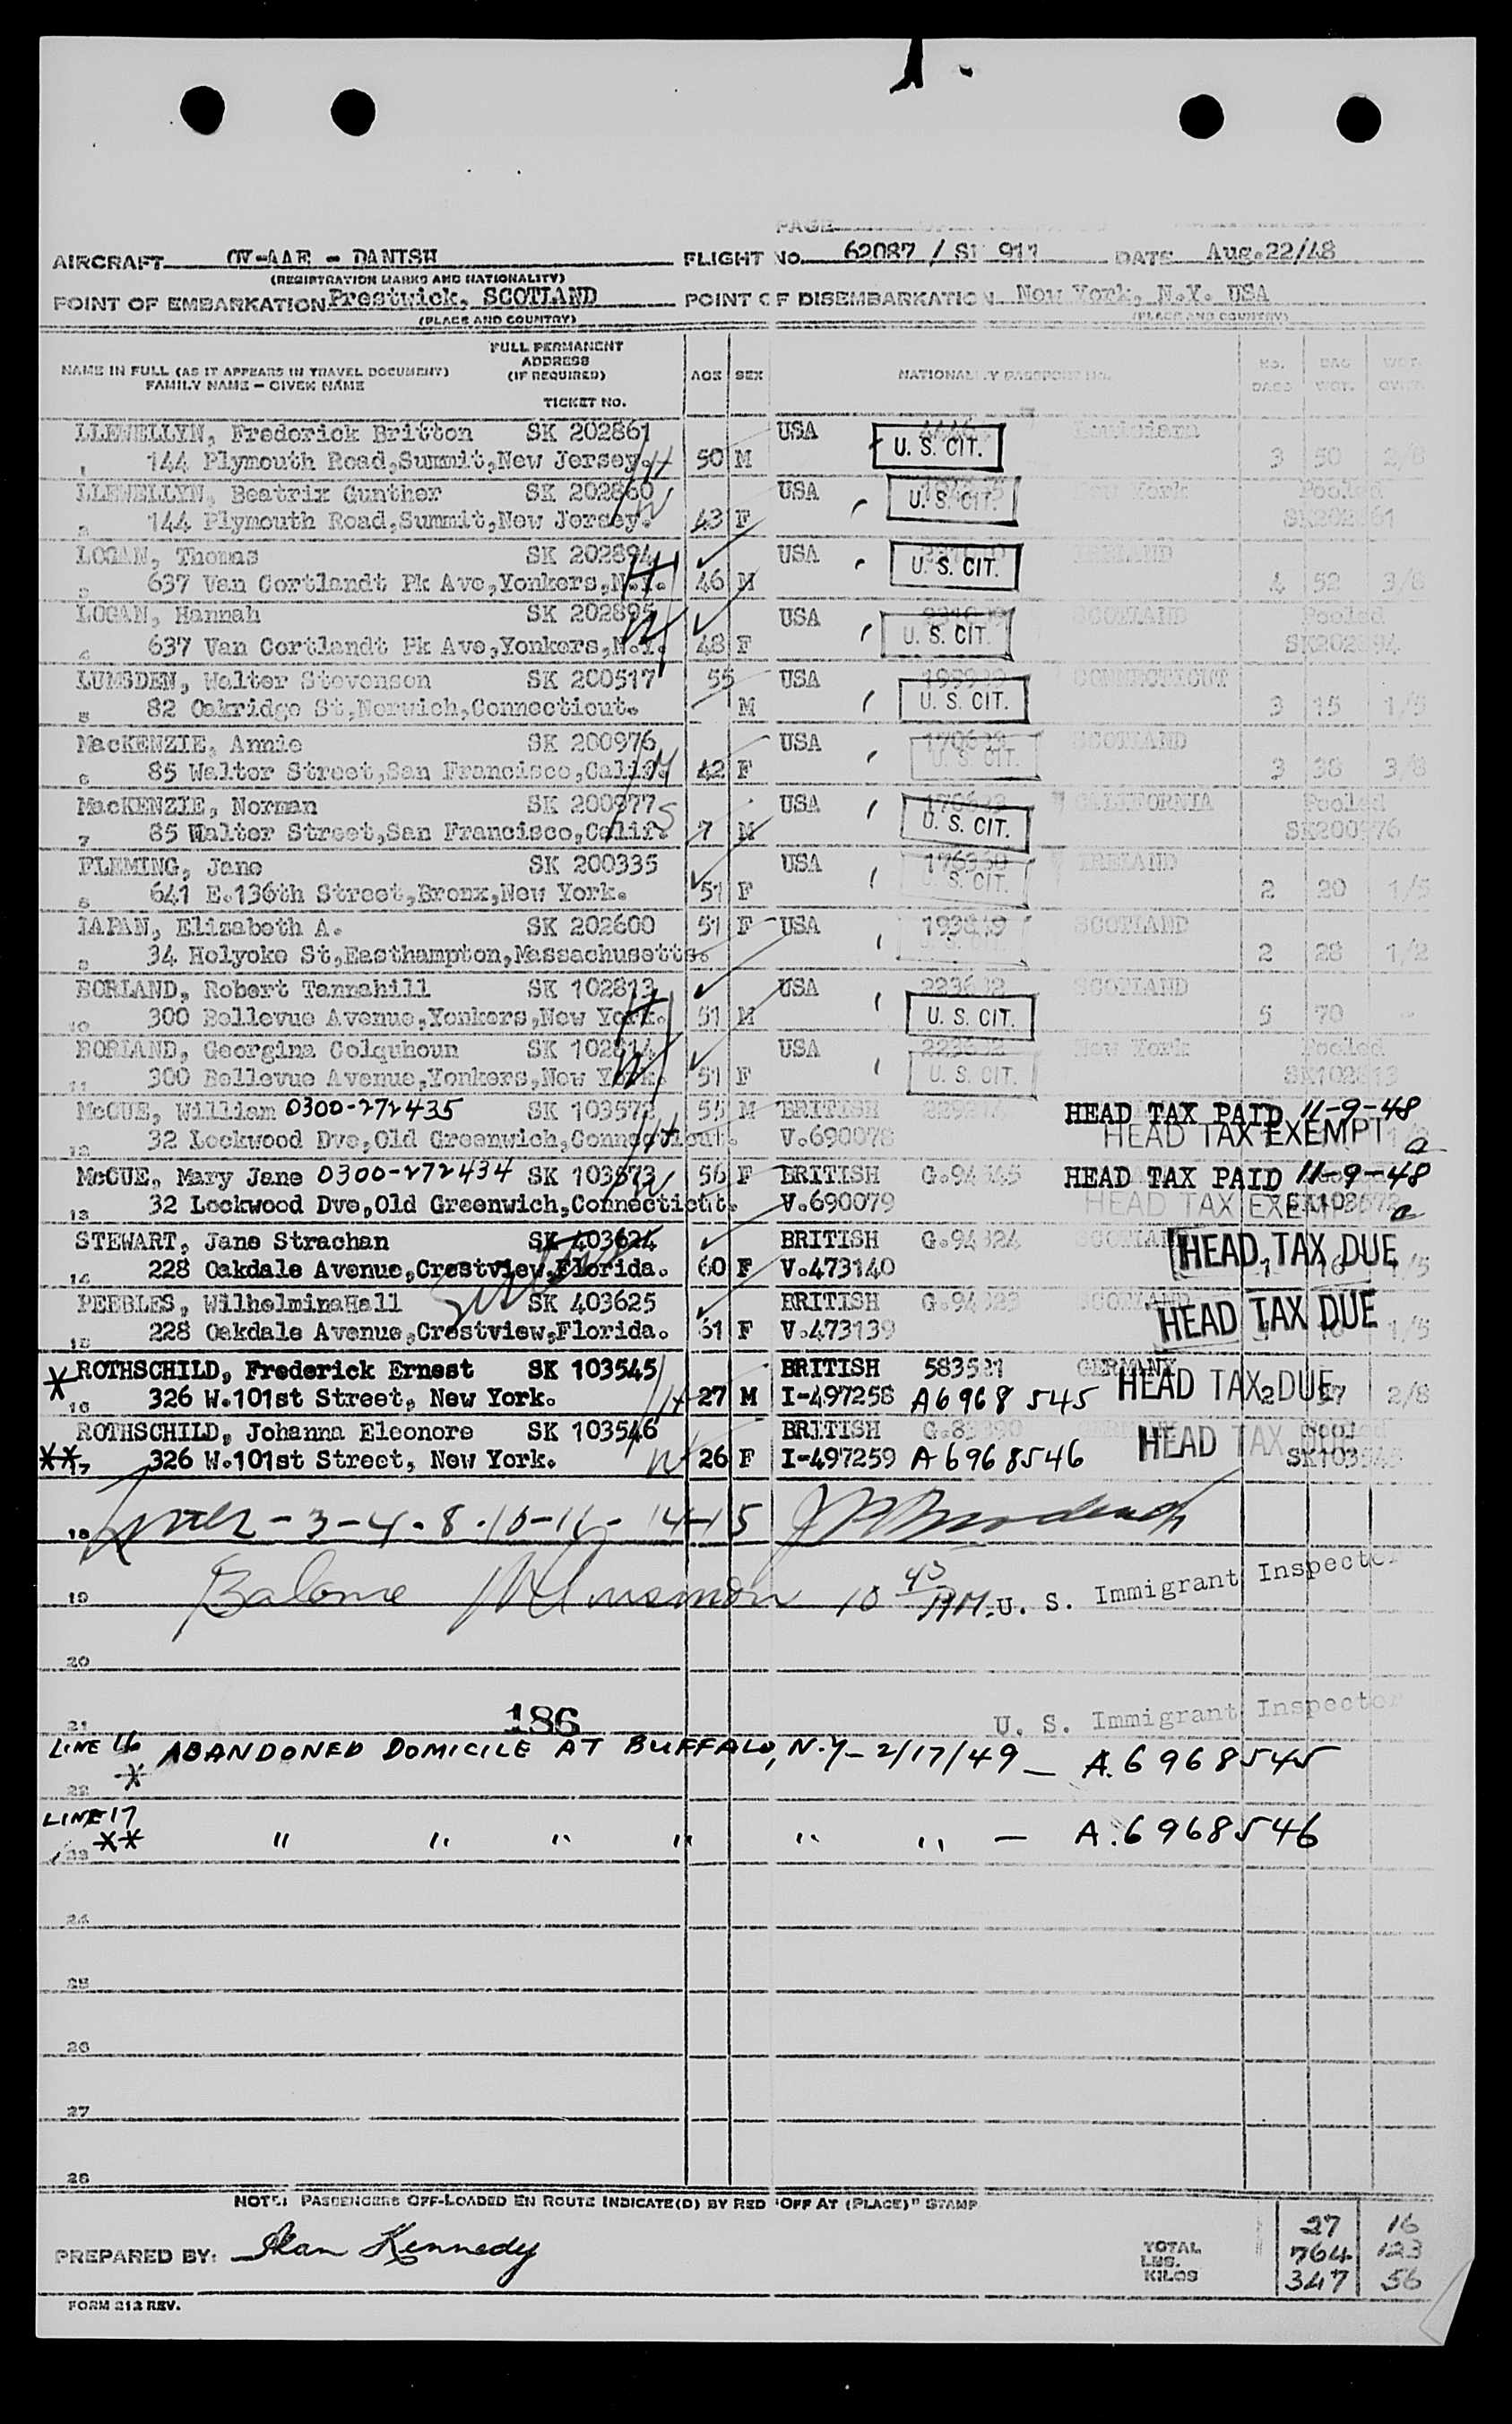 PAGE
AIRCRAFT OY-AAE - DANISH FLIGHT NO. 62087 / SK 911 DATE Aug.22/48
(REGISTRATION MARKS AND NATIONALITY)
POINT OF EMBARKATION Prestwick, SCOTLAND POINT OF DISEMBARKATION New York, N.Y. USA
(PLACE AND COUNTRY) (PLACE AND COUNTRY)
NAME IN FULL (AS IT APPEARS IN TRAVEL DOCUMENT) FAMILY NAME - GIVEN NAME FULL PERMANENT ADDRESS (IF REQUIRED) TICKET NO. AGE SEX NATIONALITY PASSPORT NO. NO. BAGS BAG WGT. WGT.
LLEWELLYN, Frederick Britton SK 202861 USA U. S. CIT. Louisiana
1 144 Plymouth Road,Summit,New Jersey. H 50 M 3 50 2/8
LLEWELLYN, Beatrix Gunther SK 202860 USA U. S. CIT. New York Pooled
2 144 Plymouth Road,Summit,New Jersey. W 43 F SK202861
LOGAN, Thomas SK 202894 USA U. S. CIT. IRELAND
3 637 Van Cortlandt Pk Ave,Yonkers,N.Y. H 46 M 4 52 3/8
LOGAN, Hannah SK 202895 USA U. S. CIT. SCOTLAND Pooled
4 637 Van Cortlandt Pk Ave,Yonkers,N.Y. W 48 F SK202894
LUMSDEN, Walter Stevenson SK 200517 55 USA U. S. CIT. CONNECTICUT
5 82 Oakridge St,Norwich,Connecticut. M 3 15 1/5
MacKENZIE, Annie SK 200976 USA U. S. CIT. SCOTLAND
6 85 Walter Street,San Francisco,Calif. M 42 F 3 38 3/8
MacKENZIE, Norman SK 200977 USA U. S. CIT. CALIFORNIA Pooled
7 85 Walter Street,San Francisco,Calif. S 7 M SK200976
FLEMING, Jane SK 200335 USA U. S. CIT. IRELAND
8 641 E.136th Street,Bronx,New York. 51 F 2 20 1/5
LAPAN, Elizabeth A. SK 202600 51 F USA SCOTLAND
9 34 Holyoke St,Easthampton,Massachusetts. 2 28 1/2
BORLAND, Robert Tannahill SK 102813 USA SCOTLAND
10 300 Bellevue Avenue,Yonkers,New York. H 51 M U. S. CIT. 5 70
BORLAND, Georgina Colquhoun SK 102814 USA New York Pooled
11 300 Bellevue Avenue,Yonkers,New York. W 51 F U. S. CIT. SK102813
McCUE, William 0300-272435 SK 103572 55 M BRITISH HEAD TAX PAID 11-9-48
12 32 Lockwood Dve,Old Greenwich,Connecticut. H V.690078 HEAD TAX EXEMPT a
McCUE, Mary Jane 0300-272434 SK 103573 56 F BRITISH HEAD TAX PAID 11-9-48
13 32 Lockwood Dve,Old Greenwich,Connecticut. W V.690079 HEAD TAX EXEMPT SK103572 a
STEWART, Jane Strachan SK 403624 BRITISH SCOTLAND HEAD TAX DUE
14 228 Oakdale Avenue,Crestview,Florida. 60 F V.473140 1/5
PEEBLES, WilhelminaHall SK 403625 BRITISH SCOTLAND HEAD TAX DUE
15 228 Oakdale Avenue,Crestview,Florida. 61 F V.473139 1/5
* ROTHSCHILD, Frederick Ernest SK 103545 BRITISH GERMANY HEAD TAX DUE
16 326 W.101st Street, New York. H 27 M I-497258 A6968545 2 2/8
ROTHSCHILD, Johanna Eleonore SK 103546 BRITISH HEAD TAX
** 17 326 W.101st Street, New York. W 26 F I-497259 A6968546 SK103545
18 -3-4-8-10-11-14-15
19 Balance 10 45 PM. U. S. Immigrant Inspector
20
186
21 U. S. Immigrant Inspector
LINE 16 ABANDONED DOMICILE AT BUFFALO, N.Y - 2/17/49 - A. 6968545
*
22
LINE 17
** " " " " " " - A. 6968546
23
24
25
26
27
28
NOTE: PASSENGERS OFF-LOADED EN ROUTE INDICATE(D) BY RED "OFF AT (PLACE)" STAMP
27 16
PREPARED BY: Alan Kennedy TOTAL LBS. 764 123
KILOS 347 56
FORM 212 REV.